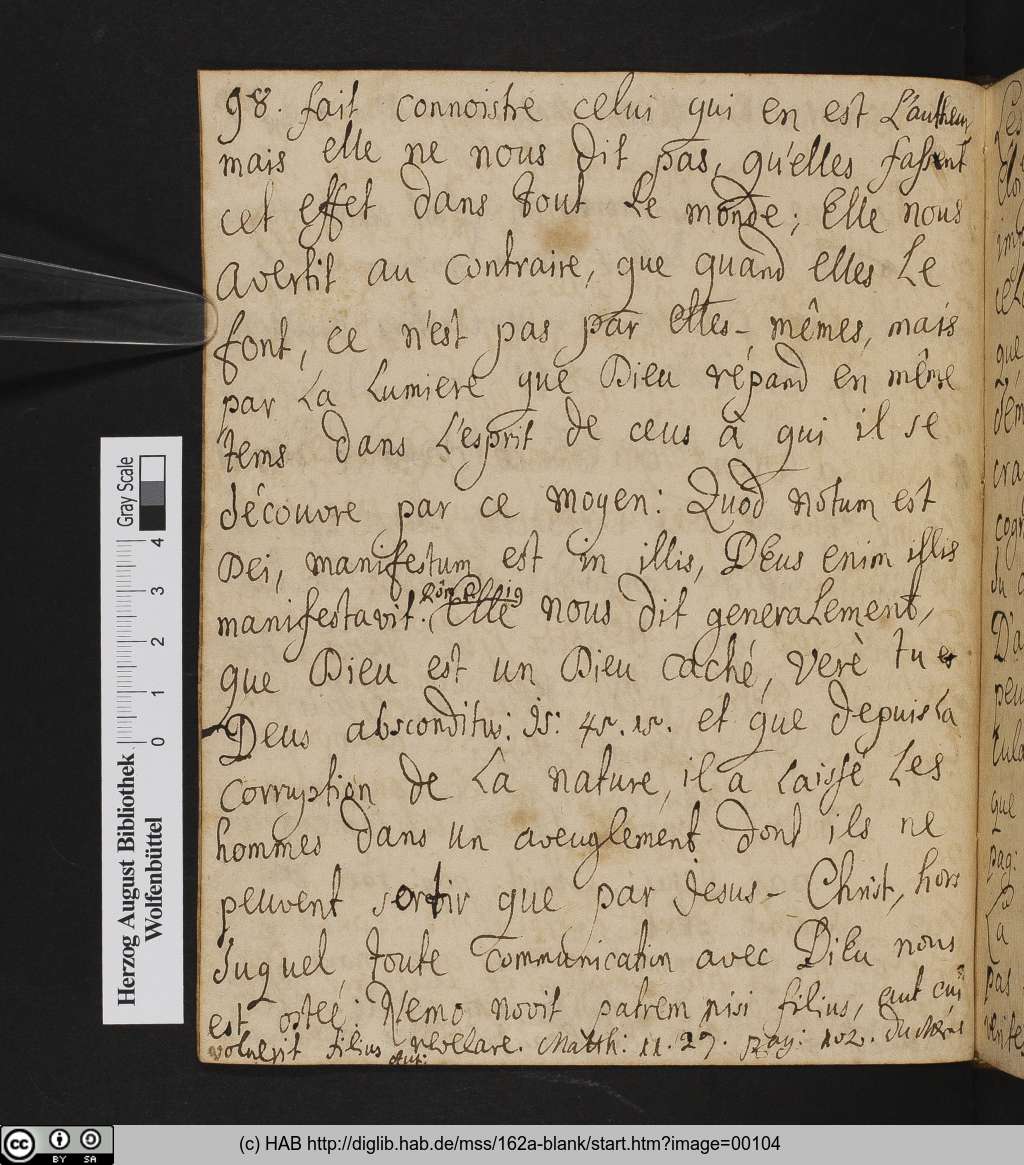 98. fait connoistre celui qui en est L'autheur
mais elle ne nous dit pas, qu'elles fassent
cet effet dans tout Le monde; Elle nous
avertit au contraire, que quand elles Le
font, ce n'est pas par elles-mêmes, mais
par La Lumiere que Dieu répand en même
tems dans L'esprit de ceus à qui il se
découvre par ce moyen: Quod notum est
Dei, manifestum est in illis, Deus enim illis
manifestavit. Elle nous dit generaLement,
que Dieu est un Dieu caché, verè tu es
Deus absconditus: Is: 45. 15. et que depuis La
corruption de La nature, il a Laissé Les
hommes dans un aveuglement dont ils ne
peuvent sortir que par Jesus-Christ, hors
duquel toute communication avec Dieu nous
est ostée: Nemo novit patrem nisi filius, aut cui
voluerit filius revellare. Matth: 11. 27. pag: 202.
Herzog August Bibliothek
Wolfenbüttel
0 1 2 3 4
Gray Scale
cc BY SA
(c) HAB http://diglib.hab.de/mss/162a-blank/start.htm?image=00104